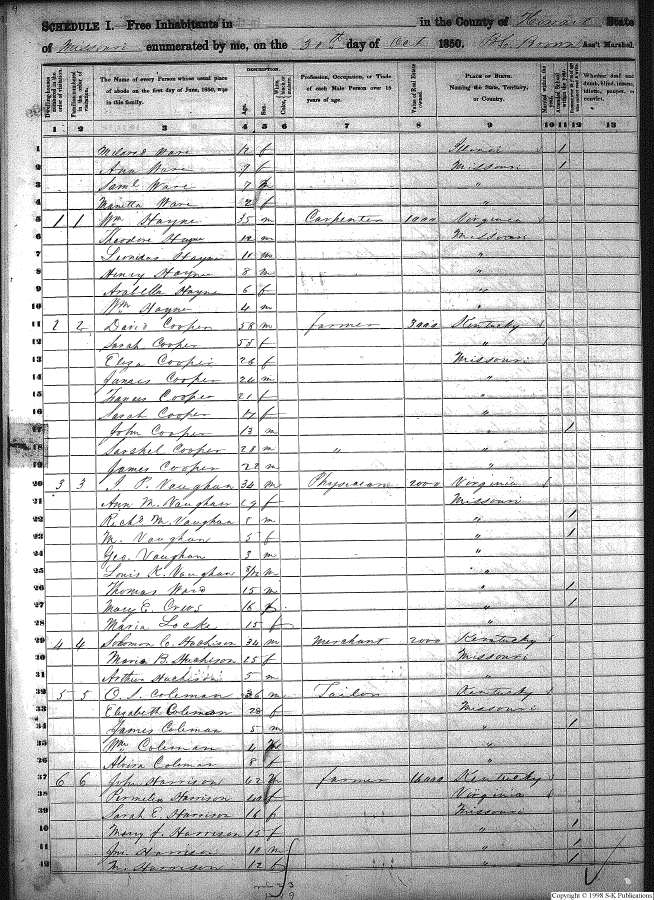 SCHEDULE I. Free Inhabitants in in the County of Howard State
of Missouri enumerated by me, on the 30th day of Oct 1850. Ass't Marshal.
Dwelling-houses numbered in the order of visitation.
Families numbered in the order of visitation.
The Name of every Person whose usual place of abode on the first day of June, 1850, was in this family.
DESCRIPTION.
Age.
Sex.
Color, White, black, or mulatto.
Profession, Occupation, or Trade of each Male Person over 15 years of age.
Value of Real Estate owned.
PLACE OF BIRTH. Naming the State, Territory, or Country.
Married within the year.
Attended School within the year.
Whether deaf and dumb, blind, insane, idiotic, pauper, or convict.
1 2 3 4 5 6 7 8 9 10 11 12 13
1 Ware f 1
2 Ann Ware 9 f Missouri 1
3 Saml Ware 7 "
4 Ware 2 f "
5 1 1 Wm Hayne 35 m Carpenter 1000 Virginia
6 Theodore 12 m Missouri
7 Leonidas Hayne 10 m "
8 Henry Hayne 8 m "
9 Arabella Hayne 6 f "
10 Wm Hayne 4 m "
11 2 2 David Cooper 58 m farmer 3000 Kentucky
12 Sarah Cooper 55 f "
13 Eliza Cooper 26 f Missouri
14 Cooper 24 m "
15 Cooper 21 f "
16 Sarah Cooper 17 f "
17 John Cooper 13 m " 1
18 Sarshel Cooper 28 m " "
19 James Cooper 22 m "
20 3 3 J. P. Vaughan 34 m Physician 2000 Virginia
21 Ann M. Vaughan 29 f Missouri
22 Richd M. Vaughan 8 m " 1
23 M. Vaughan 5 f " 1
24 Geo. Vaughan 3 m "
25 Louis K. Vaughan 3/12 m "
26 Thomas Ward 15 m " 1
27 Mary E. Crews 16 f " 1
28 Maria Locke 15 f "
29 4 4 Solomon C. Huchison 34 m Merchant 2000 Kentucky
30 Maria B. Huchison 25 f Missouri
31 Arthur Huchison 5 m "
32 5 5 O. S. Coleman 36 m Tailor Kentucky
33 Elizabeth Coleman 28 f Missouri
34 James Coleman 5 m " 1
35 Wm Coleman 4 "
36 Coleman 8 f "
37 6 6 John Harrison 62 farmer Kentucky
38 Permelia Harrison f Virginia
39 Sarah E. Harrison 16 f Missouri
10 Mary J. Harrison 15 f " 1
11 Harrison 10 m " 1
12 M. Harrison 12 f " 1
Copyright © 1998 S-K Publications